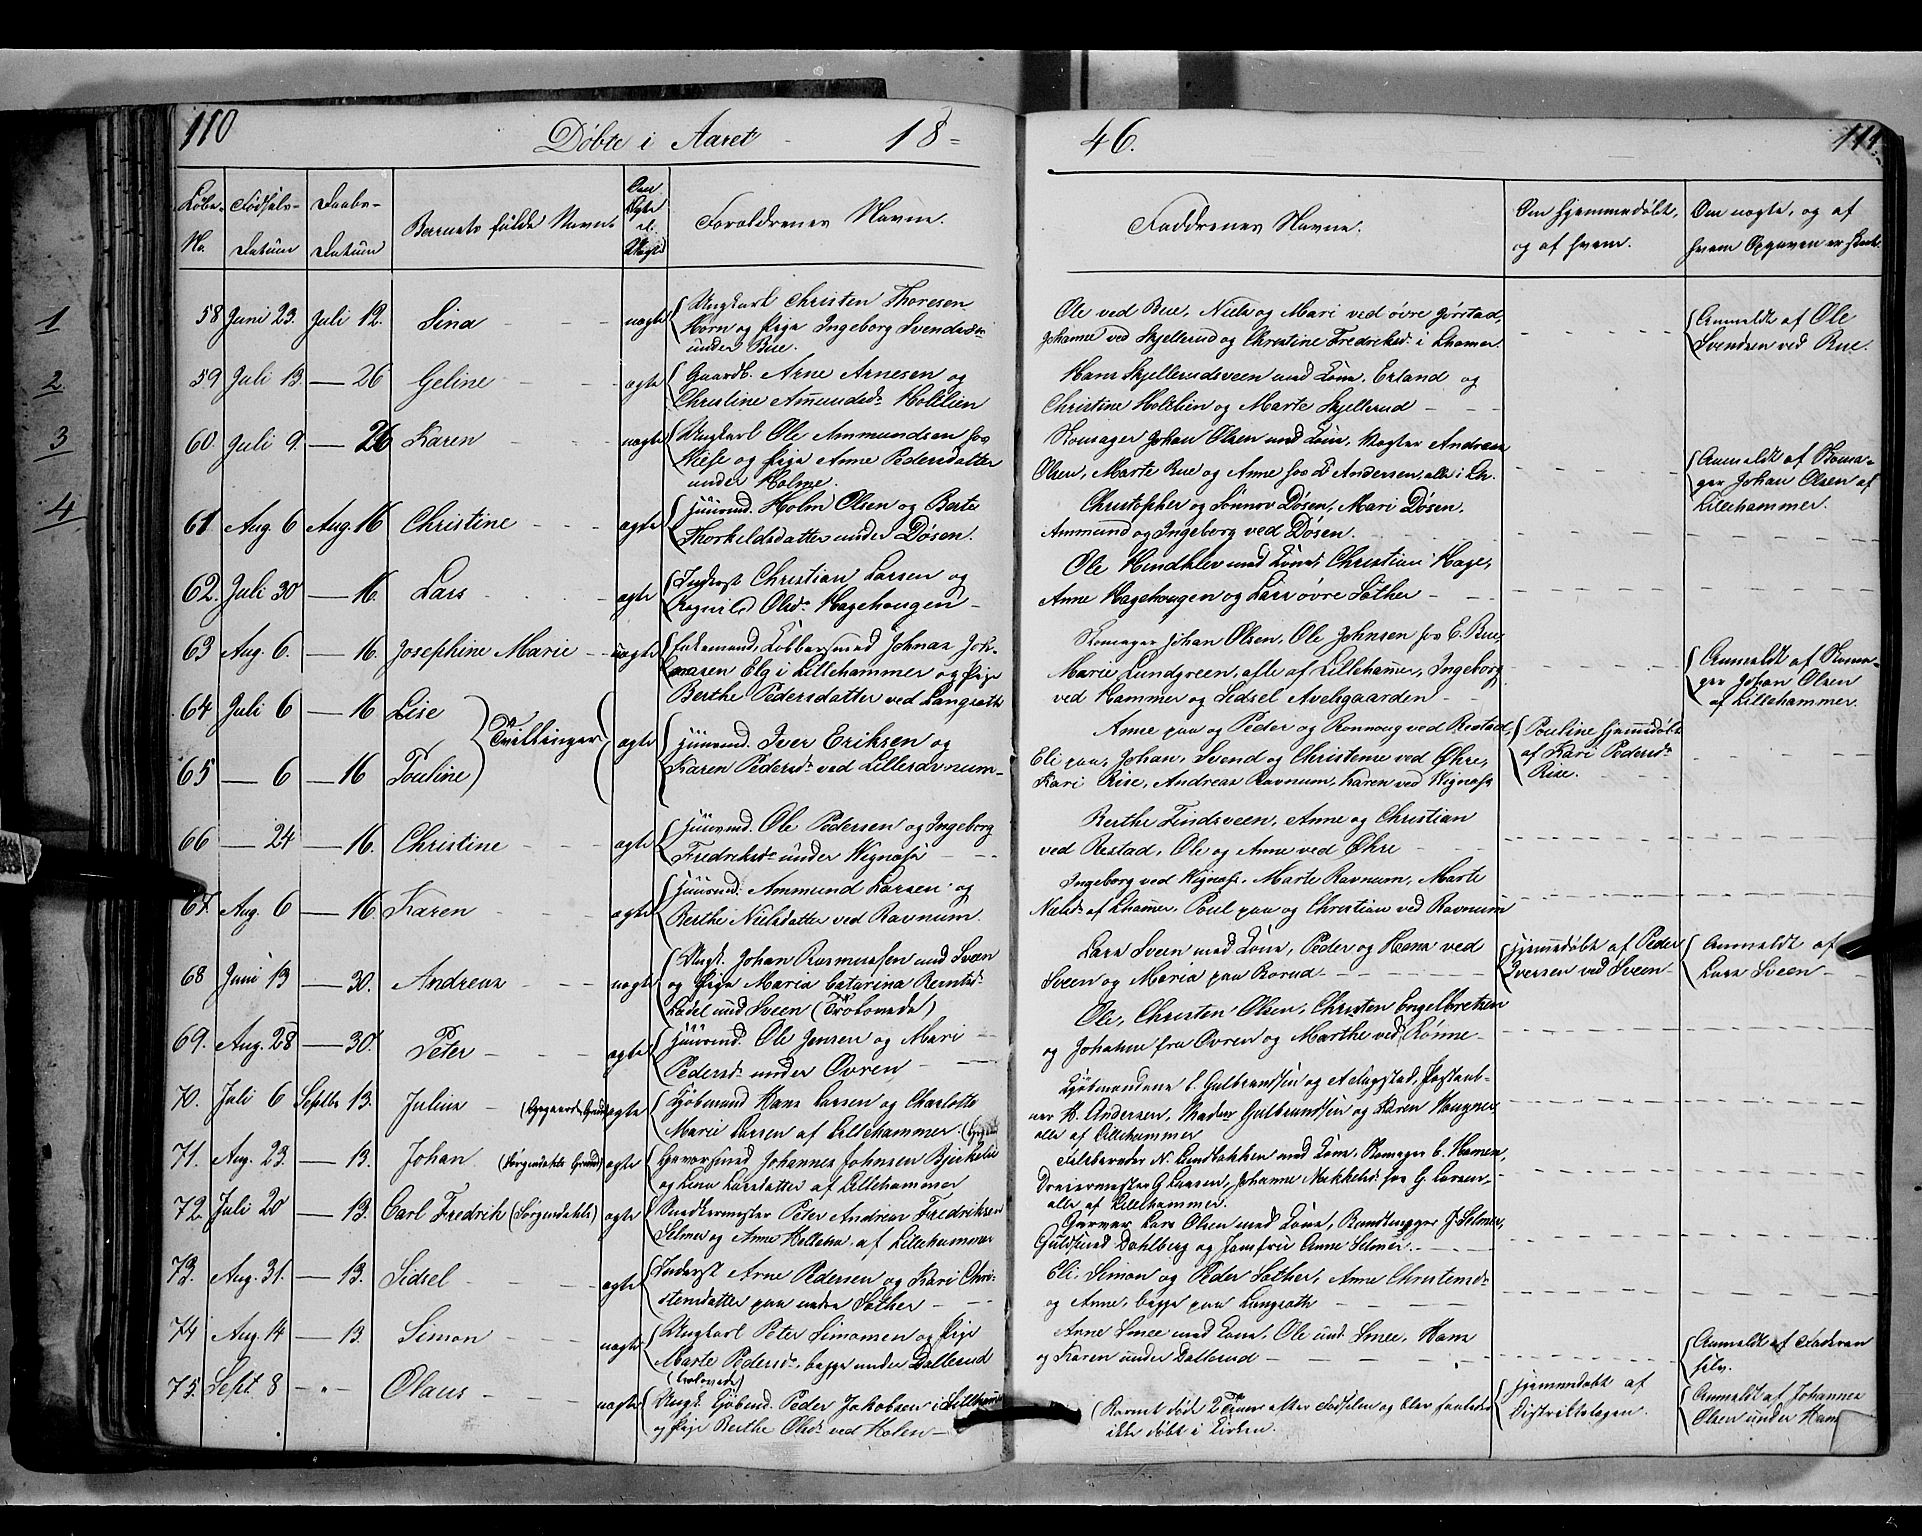 110
Døbte i Aaret 18=
46.
111
Løbe-No.
Fødsels-Datum
Daabs-Datum
Barnets fulde Navn
Om Ægte el. Uægte
Forældrenes Navne.
Faddrenes Navne.
Om hjemmedøbt, og af hvem.
Om uægte, og af hvem Opgaven er skeet.
1
2
3
4
58 Juni 23. Juli 12. Sina uægte
Ungkarl Christen Thoresen
Horn og Pige Ingeborg Svendsdr
under Bue.
Ole ved Bue, Niels og Mari ved øvre Jørstad,
Johanne ved Skjellerud og Christine Fredriksdr i Lhamer.
Anmeldt af Ole
Svendsen ved Bue.
59 Juli 13. — 26 Geline ægte
Gaardb. Arne Arnesen og
Christine Amundsdr Holtlien
Hans Skjellerudsveen med Kone, Erland og
Christine Holtlien og Marte Skjellerud
60. Juli 9. — 26 Karen uægte
Ungkarl Ole Ammundsen hos
Wiese og Pige Anne Pedersdatter
under Holme.
Skomager Johan Olsen med Kone, Andreas
Olsen, Marte Bue og Anne hos D Andersen, alle i Lh.
Anmeldt af Skoma-
ger Johan Olsen af
Lillehammer.
61. Aug. 6 Aug. 16 Christine ægte
Huusmd. Holm Olsen og Berte
Thorkeldsdatter under Døsen.
Christopher og Sønnov Døsen, Mari Døsen,
Ammund og Ingeborg ved Døsen.
62. Juli 30 — 16. Lars ægte
Inderst Christian Larsen og
Ragnild Olsdr Hagehougen
Ole Hindklev med Kone, Christian Hage,
Anne Hagehougen og Lars øvre Sother
63 Aug. 6. — 16. Josephine Marie uægte
Enkemand, Kobbersmed Johnas Joh-
nasen Elg i Lillehammer og Pige
Berthe Pedersdatter ved Langrath
Skomager Johan Olsen, Ole Johnsen hos E. Bue,
Marie Lundgreen, alle af Lillehamer, Ingeborg
ved Hammer og Sidsel Avelsgaarden
Anmeldt af Skoma-
ger Johan Olsen
af Lillehammer.
64 Juli 6 — 16 Lise
65 — 6 — 16 Pouline
Tvillinger ægte
Huusmd. Iver Eriksen og
Karen Pedersdr ved Lilleravnum
Anne paa og Peder og Ronnoug ved Restad,
Eli paa, Johan, Svend og Christense ved Øhre,
Kari Rise, Andreas Ravnum, Karen ved Wignæss
Pouline hjemmedøbt
af Kari Pedersdr
Rise.
66 — 24 — 16. Christine ægte
Huusmd. Ole Pedersen og Ingeborg
Fredriksdr under Wignæss
Berthe Lindsveen, Anne og Christian
ved Restad, Ole og Anne ved Øhre
67. Aug. 6 — 16 Karen ægte
Huusmd. Ammund Larsen og
Berthe Nielsdatter ved Ravnum.
Ingeborg ved Wignæss, Marte Ravnum, Marte
Nielsdr af Lhamer, Poul paa og Christian ved Ravnum
68 Juni 13 — 30. Andreas uægte
Ungk. Johan Rasmussen und Sveen
og Pige Maria Catarina Berntsdr
Ladel und Sveen (Trolovede)
Lars Sveen med Kone, Peder og Hans ved
Sveen og Maria paa Rorud
Hjemmedøbt af Peder
Iversen ved Sveen
Anmeldt af
Lars Sveen
69. Aug. 28 — 30. Peter ægte
Huusmd. Ole Jensen og Mari
Pedersdr under Ovren
Ole, Christen Olsen, Christen Engelbretsen
og Johanne fra Ovren og Marthe ved Rønne
70. Juli 6 Septbr 13. Julius (Grund) ægte
Kjøbmand Hans Larsen og Charlotte
Marie Larsen af Lillehammer
Kjøbmændene C. Gulbrandsen og Aa-
H. Andersen, Madm Gulbrandsen og Karen
alle af Lillehammer
71. Aug. 23. — 13. Johan (Jørgendahls Grund) ægte
Johannes Johnsen Bjerkelie
og Lina Larsdatter af Lillehammer
Feldbereder N. Lundbakken med Kone, Skomager C. Hansen,
Dreiermester G Larsen, Johanne hos G. Larsen,
alle af Lillehammer.
72 Juli 20 — 13. Carl Fredrik (Jørgendahls) ægte
Snedkermester Peter Andreas Fredriksen
Selmer og Anne af Lillehammer
Garver Lars Olsen med Kone, Bundtmager J. Selmer,
Guldsmed Dahlberg og Jomfru Anne Selmer.
73. Aug. 31. — 13. Sidsel ægte
Inderst Arne Pedersen og Kari Chri-
stensdatter paa nedre Sother
Eli, Simon og Peder Sother, Anne Christensdr
og Anne, begge paa Langrath
74 Aug. 14 — 13. Simon uægte
Ungkarl Peter Simonsen og Pige
Marte Pedersdr, begge under Dallerud
(trolovede)
Arne Smee med Kone, Ole und. Smee, Hans
og Karen under Dallerud
Anmeldt af Faderen
selv.
75. Sept 8 — " — Olaus uægte
Ungk. Kjøbmd. Peder Jakobsen i Lillhamer
og Pige Berthe Olsdr ved Holen
Barnet døde 2 Timer efter Fødselen og blev saaledes
ikke døbt i Kirken.
Hjemmedøbt af
Distriktslægen.
Anmeldt af Johannes
Olsen under Ham